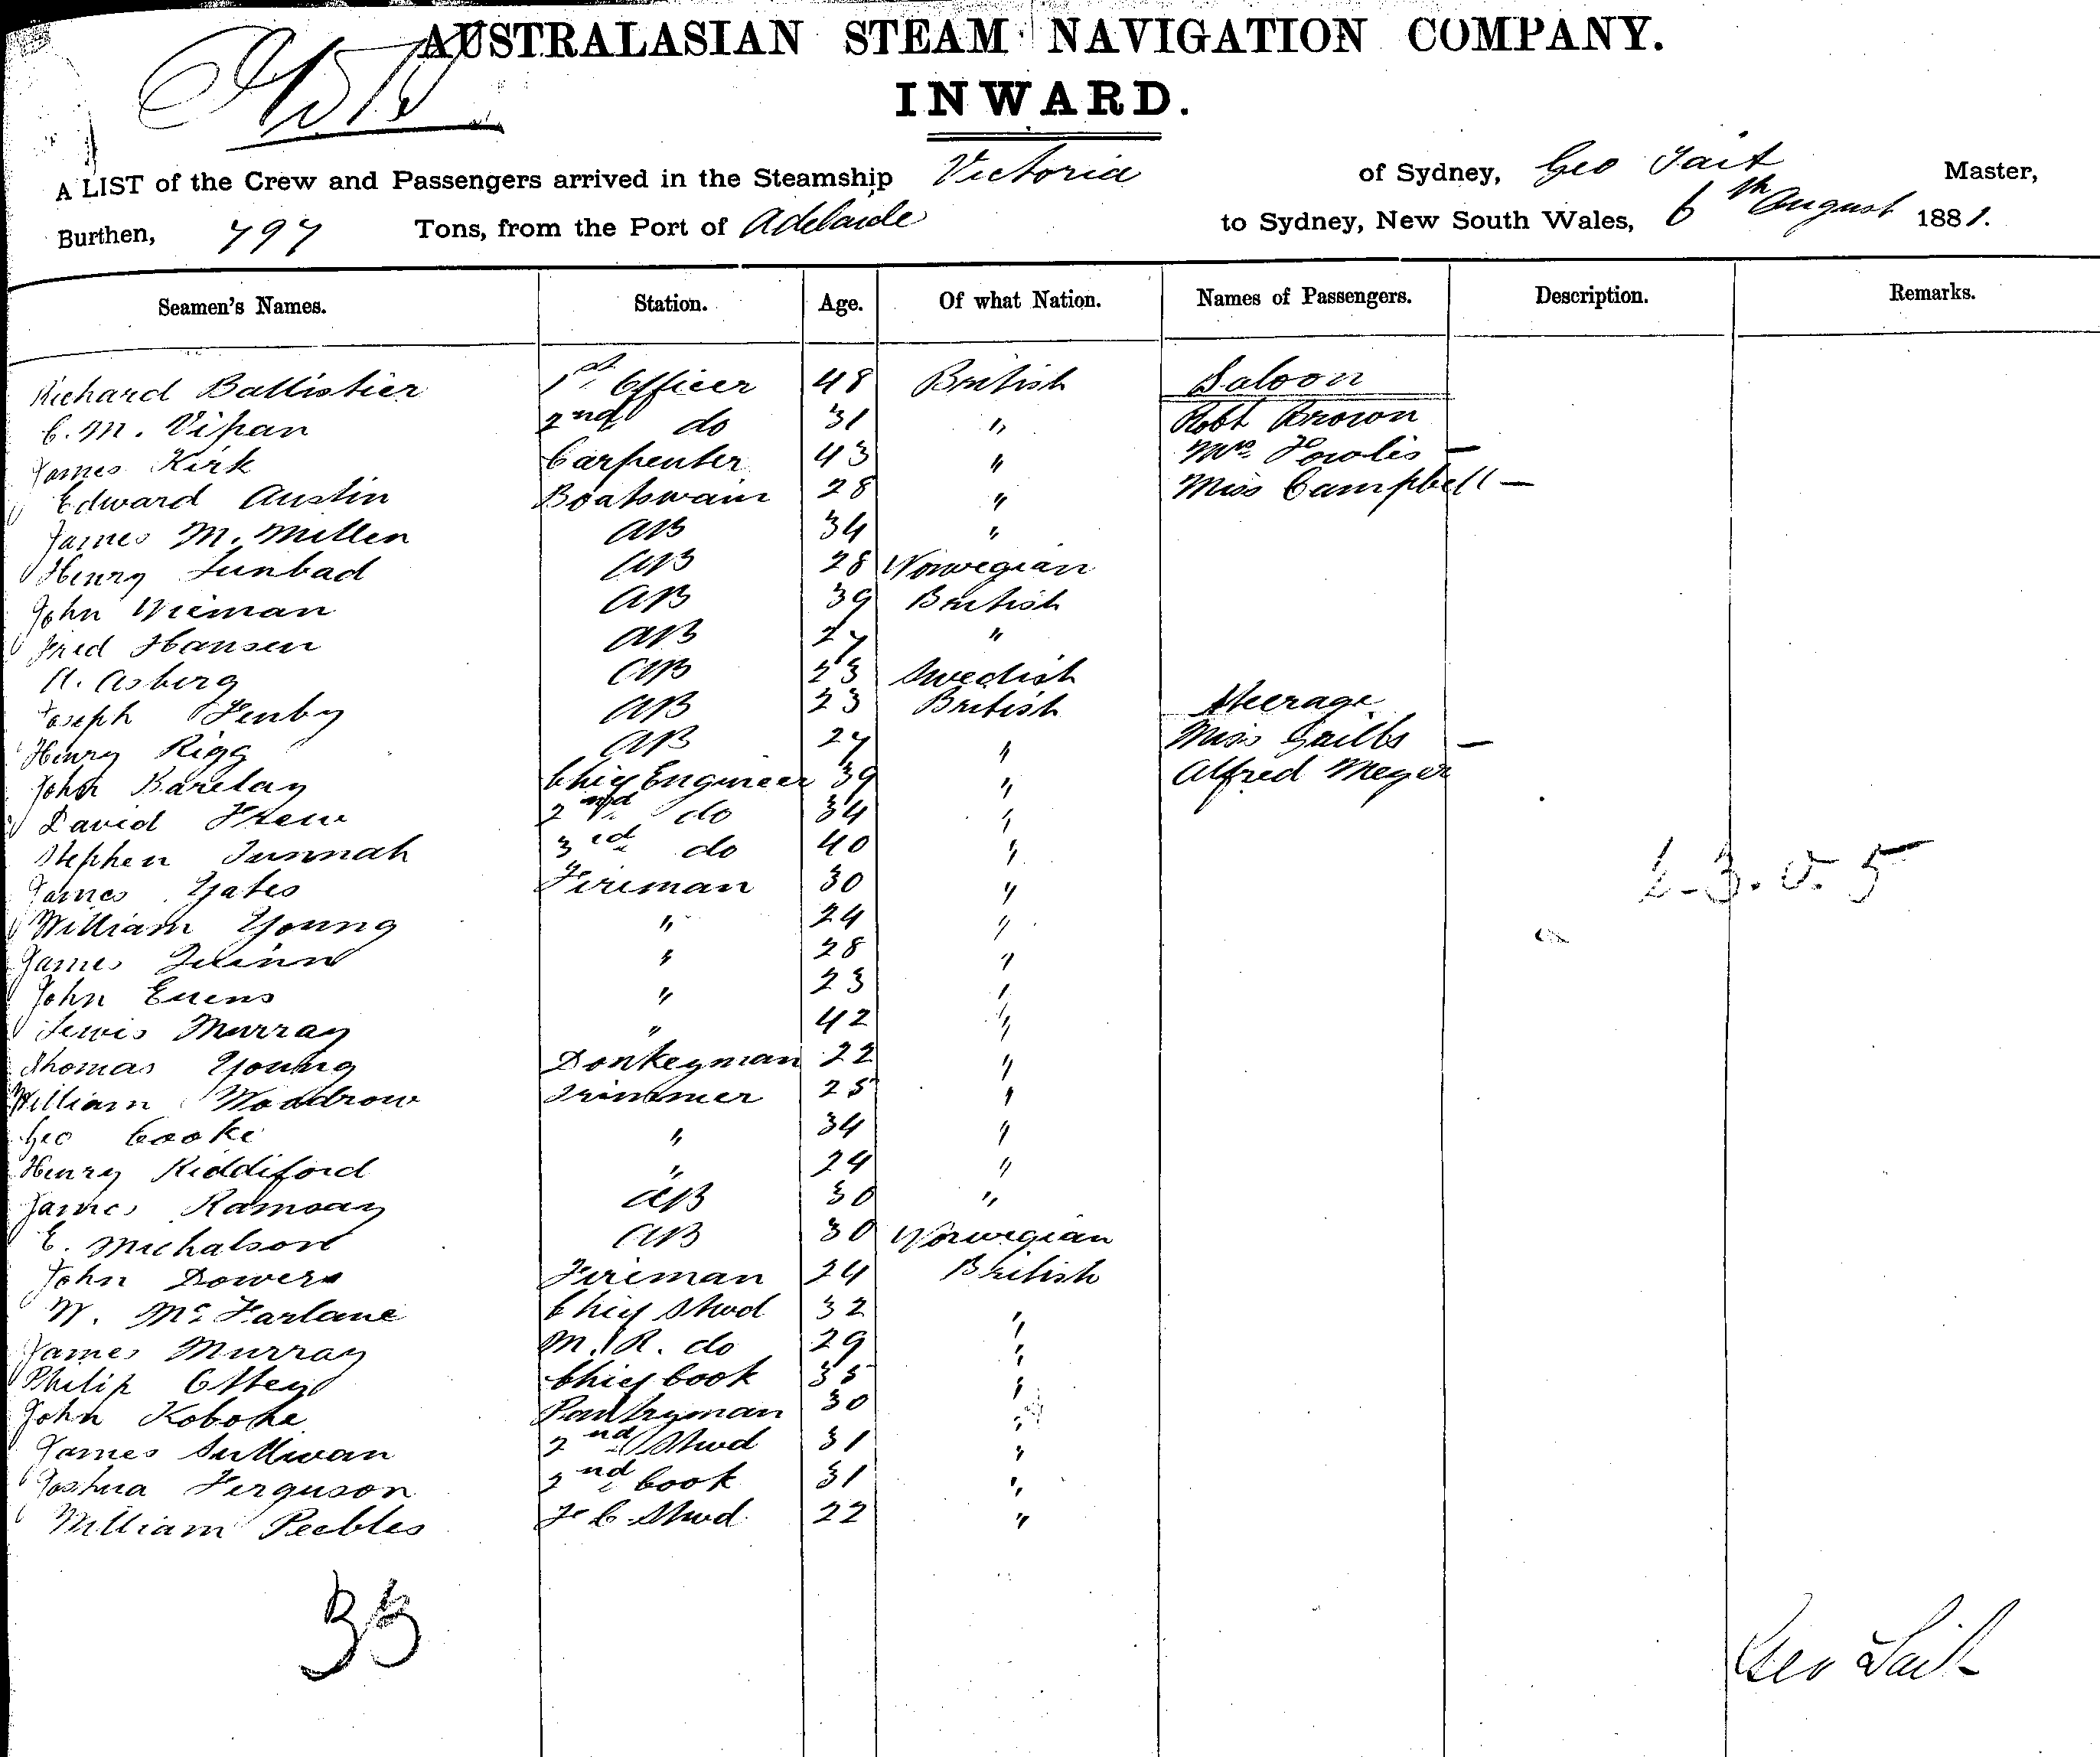 AUSTRALASIAN STEAM NAVIGATION COMPANY.
INWARD.
A LIST of the Crew and Passengers arrived in the Steamship Victoria of Sydney, Geo Tait Master,
Burthen, 797 Tons, from the Port of Adelaide to Sydney, New South Wales, 6th August 1881.
Seamen's Names. Station. Age. Of what Nation. Names of Passengers. Description. Remarks.
Richard Ballistier 1st Officer 48 British Saloon
C. M. Vipan 2nd do 31 " Robt Brown
James Kirk Carpenter 43 " Mrs Fowlis —
Edward Austin Boatswain 28 " Miss Campbell —
James M. Millen AB 34 "
Henry Lunbad AB 28 Norwegian
John Wieman AB 39 British
Fred Hansen AB 27 "
A. Asberg AB 23 Swedish
Joseph Fenby AB 23 British Steerage
Henry Rigg AB 27 " Miss —
John Barclay Chief Engineer 39 " Alfred Meyer
David Frew 2nd do 34 "
Stephen Tunnah 3rd do 40 "
James Yates Fireman 30 "
William Young " 24 "
James Quinn " 28 "
John Euens " 23 "
Lewis Murray " 42 "
Thomas Young Donkeyman 22 "
William Woodrow Trimmer 25 "
Geo Cooke " 34 "
Henry Riddiford " 24 "
James Ramsay AB 30 "
E. Michalson AB 30 Norwegian
John Dowers Fireman 24 British
W. McFarlane Chief Stwd 32 "
James Murray M. R. do 29 "
Philip Ottey Chief Cook 35 "
John Kobohe Pantryman 30 "
James Sullivan 2nd Stwd 31 "
Joshua Ferguson 2nd Cook 31 "
William Peebles F C Stwd 22 "
33
Geo Tait